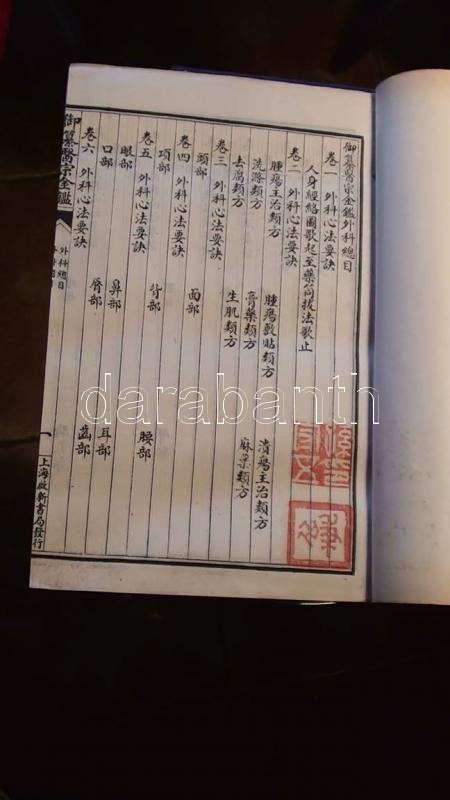 御纂醫宗金鑑外科總目
卷一 外科心法要訣
人身經絡圖歌起至藥筒拔法歌止
卷二 外科心法要訣
腫瘍主治類方 腫瘍敷貼類方 潰瘍主治類方
洗滌類方 膏藥類方 麻藥類方
去腐類方 生肌類方
卷三 外科心法要訣
頭部 面部
卷四 外科心法要訣
項部 背部 腰部
卷五 外科心法要訣
眼部 鼻部 耳部
口部 唇部 齒部
卷六 外科心法要訣
御纂醫宗金鑑
外科總目
一
上海啟新書局發行
darabanth